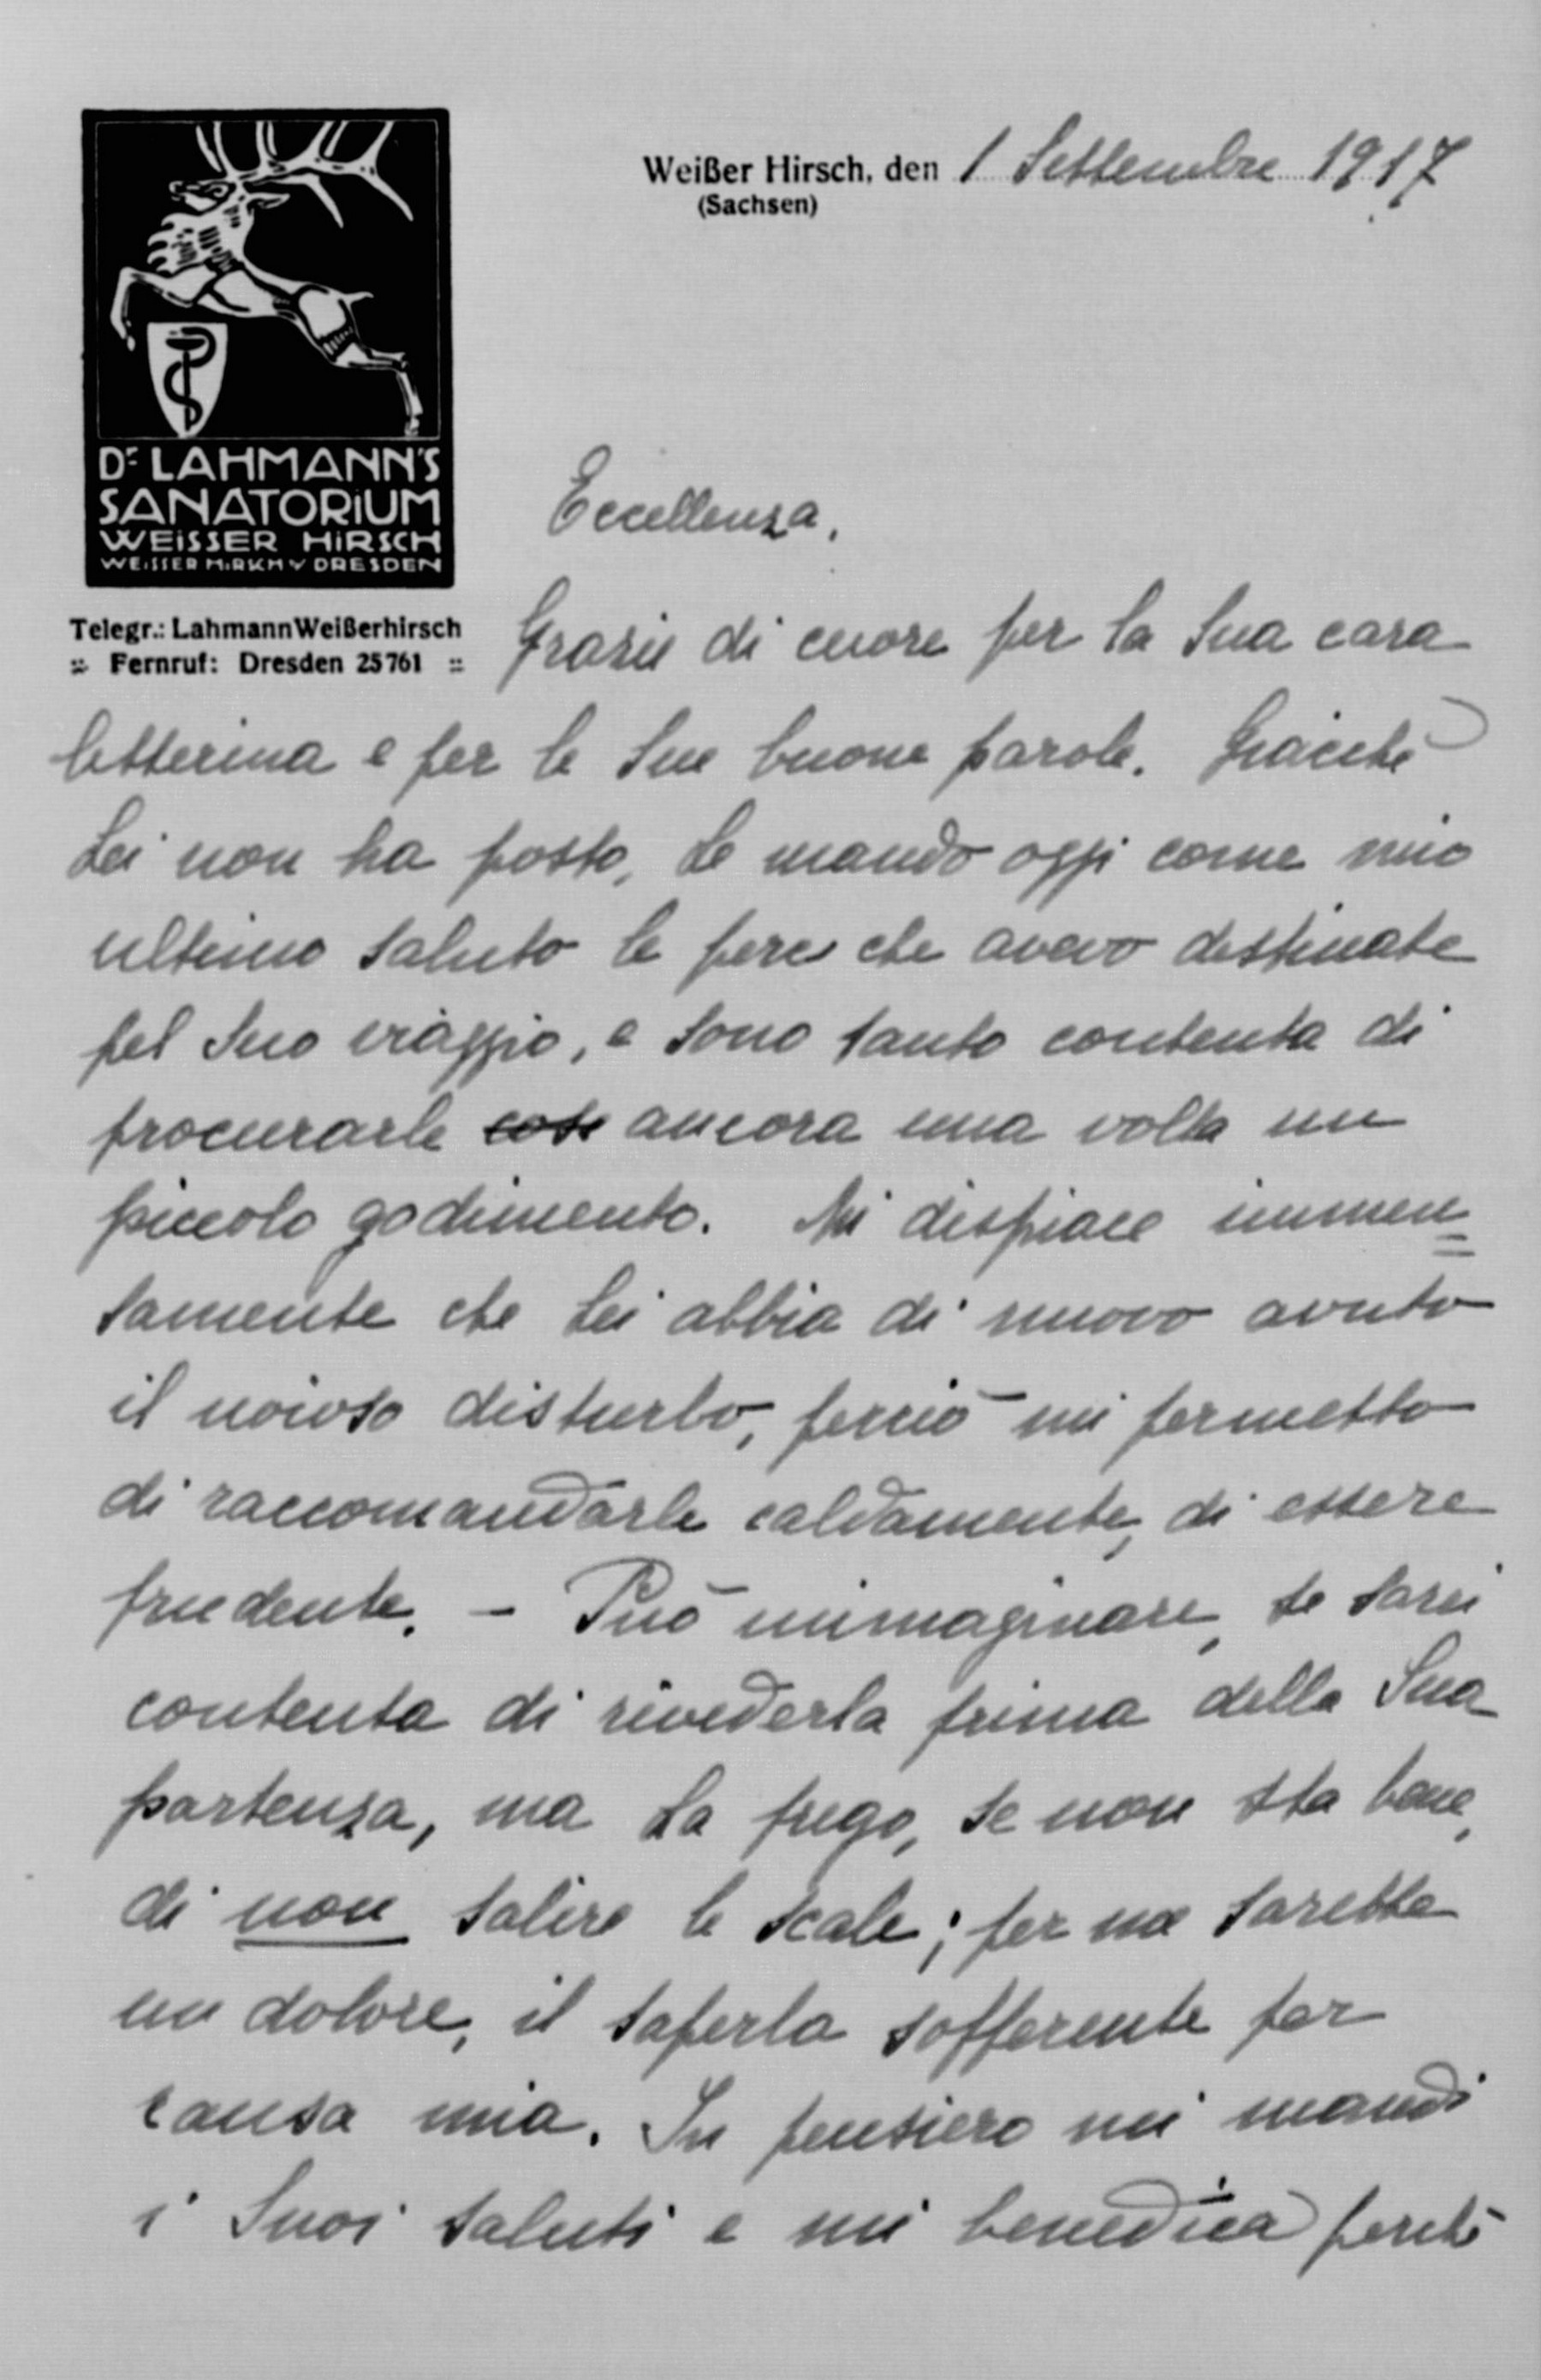 Weißer Hirsch, den 1 Settembre 1917
(Sachsen)
Dr LAHMANN'S
SANATORIUM
WEISSER HIRSCH
WEISSER HIRSCH v DRESDEN
Telegr.: Lahmann Weißerhirsch
:: Fernruf: Dresden 25761 ::
Eccellenza,
Grazie di cuore per la Sua cara
letterina e per le Sue buone parole. Giacchè
Lei non ha posto, Le mando oggi come mio
ultimo saluto le pere che avevo destinate
pel Suo viaggio, e sono tanto contenta di
procurarle così ancora una volta un
piccolo godimento. Mi dispiace immen=
samente che Lei abbia di nuovo avuto
il noioso disturbo, perciò mi permetto
di raccomandarle caldamente, di essere
prudente. – Può immaginare, se sarei
contenta di rivederla prima della Sua
partenza, ma La prego, se non sta bene,
di non salire le scale; per me sarebbe
un dolore, il saperla sofferente per
causa mia. In pensiero mi mandi
i Suoi saluti e mi benedica perchè